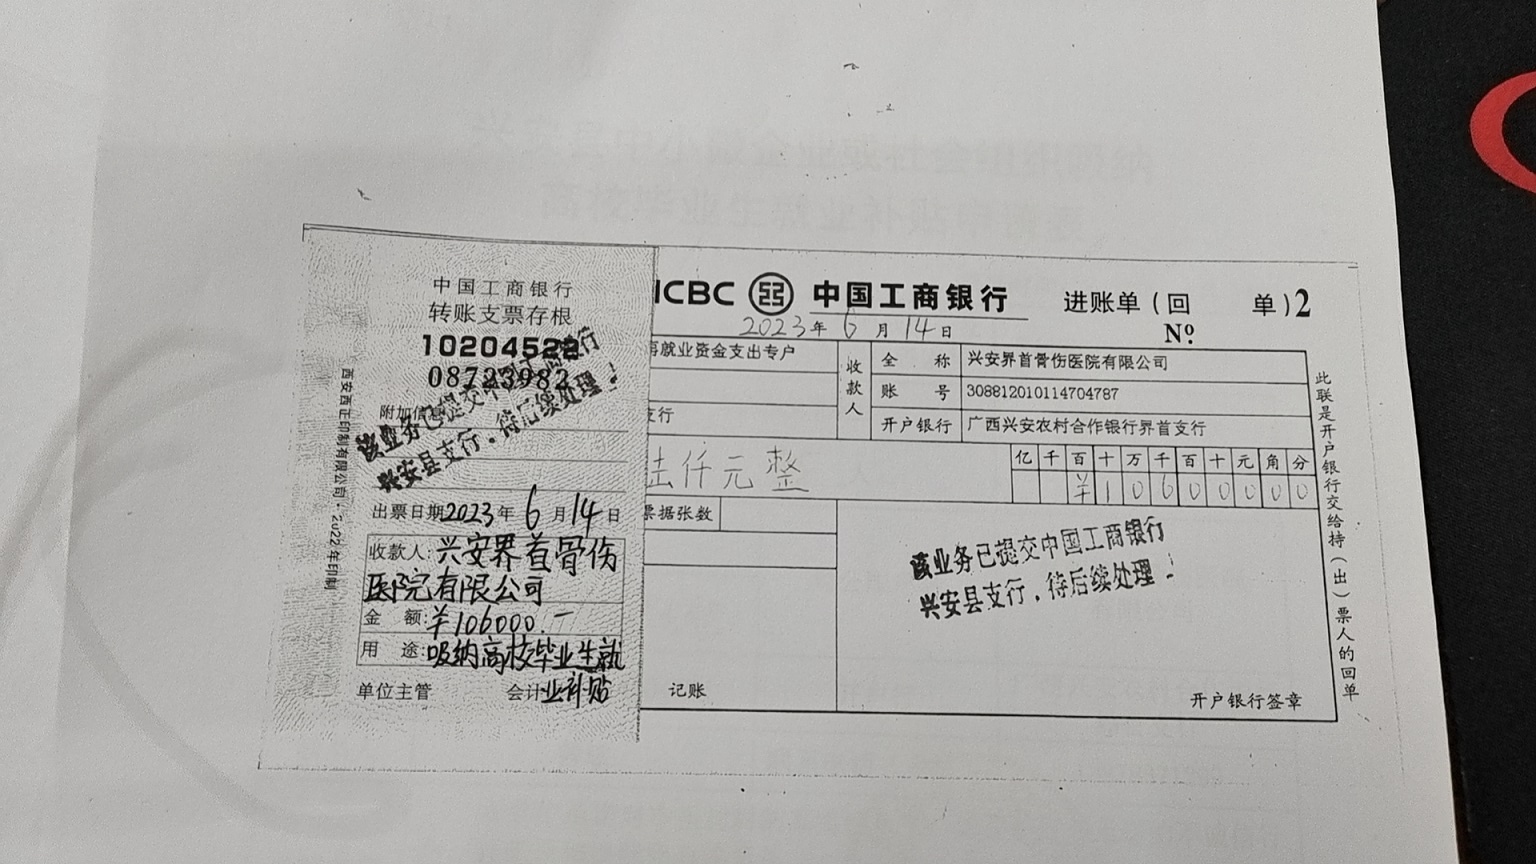 中国工商银行
转账支票存根
10204522
08723982
附加信息
该业务已提交中国工商银行
兴安县支行，待后续处理！
出票日期2023年6月14日
收款人:兴安界首骨伤
医院有限公司
金 额:¥106000.—
用 途:吸纳高校毕业生就
业补贴
单位主管 会计
西安西正印制有限公司·2022年印制
ICBC 中国工商银行 进账单(回 单)2
2023年6月14日 №:
再就业资金支出专户
支行
收款人
全 称 兴安界首骨伤医院有限公司
账 号 308812010114704787
开户银行 广西兴安农村合作银行界首支行
陆仟元整
亿千百十万千百十元角分
¥10600000
票据张数
该业务已提交中国工商银行
兴安县支行，待后续处理！
记账
开户银行签章
此联是开户银行交给持(出)票人的回单